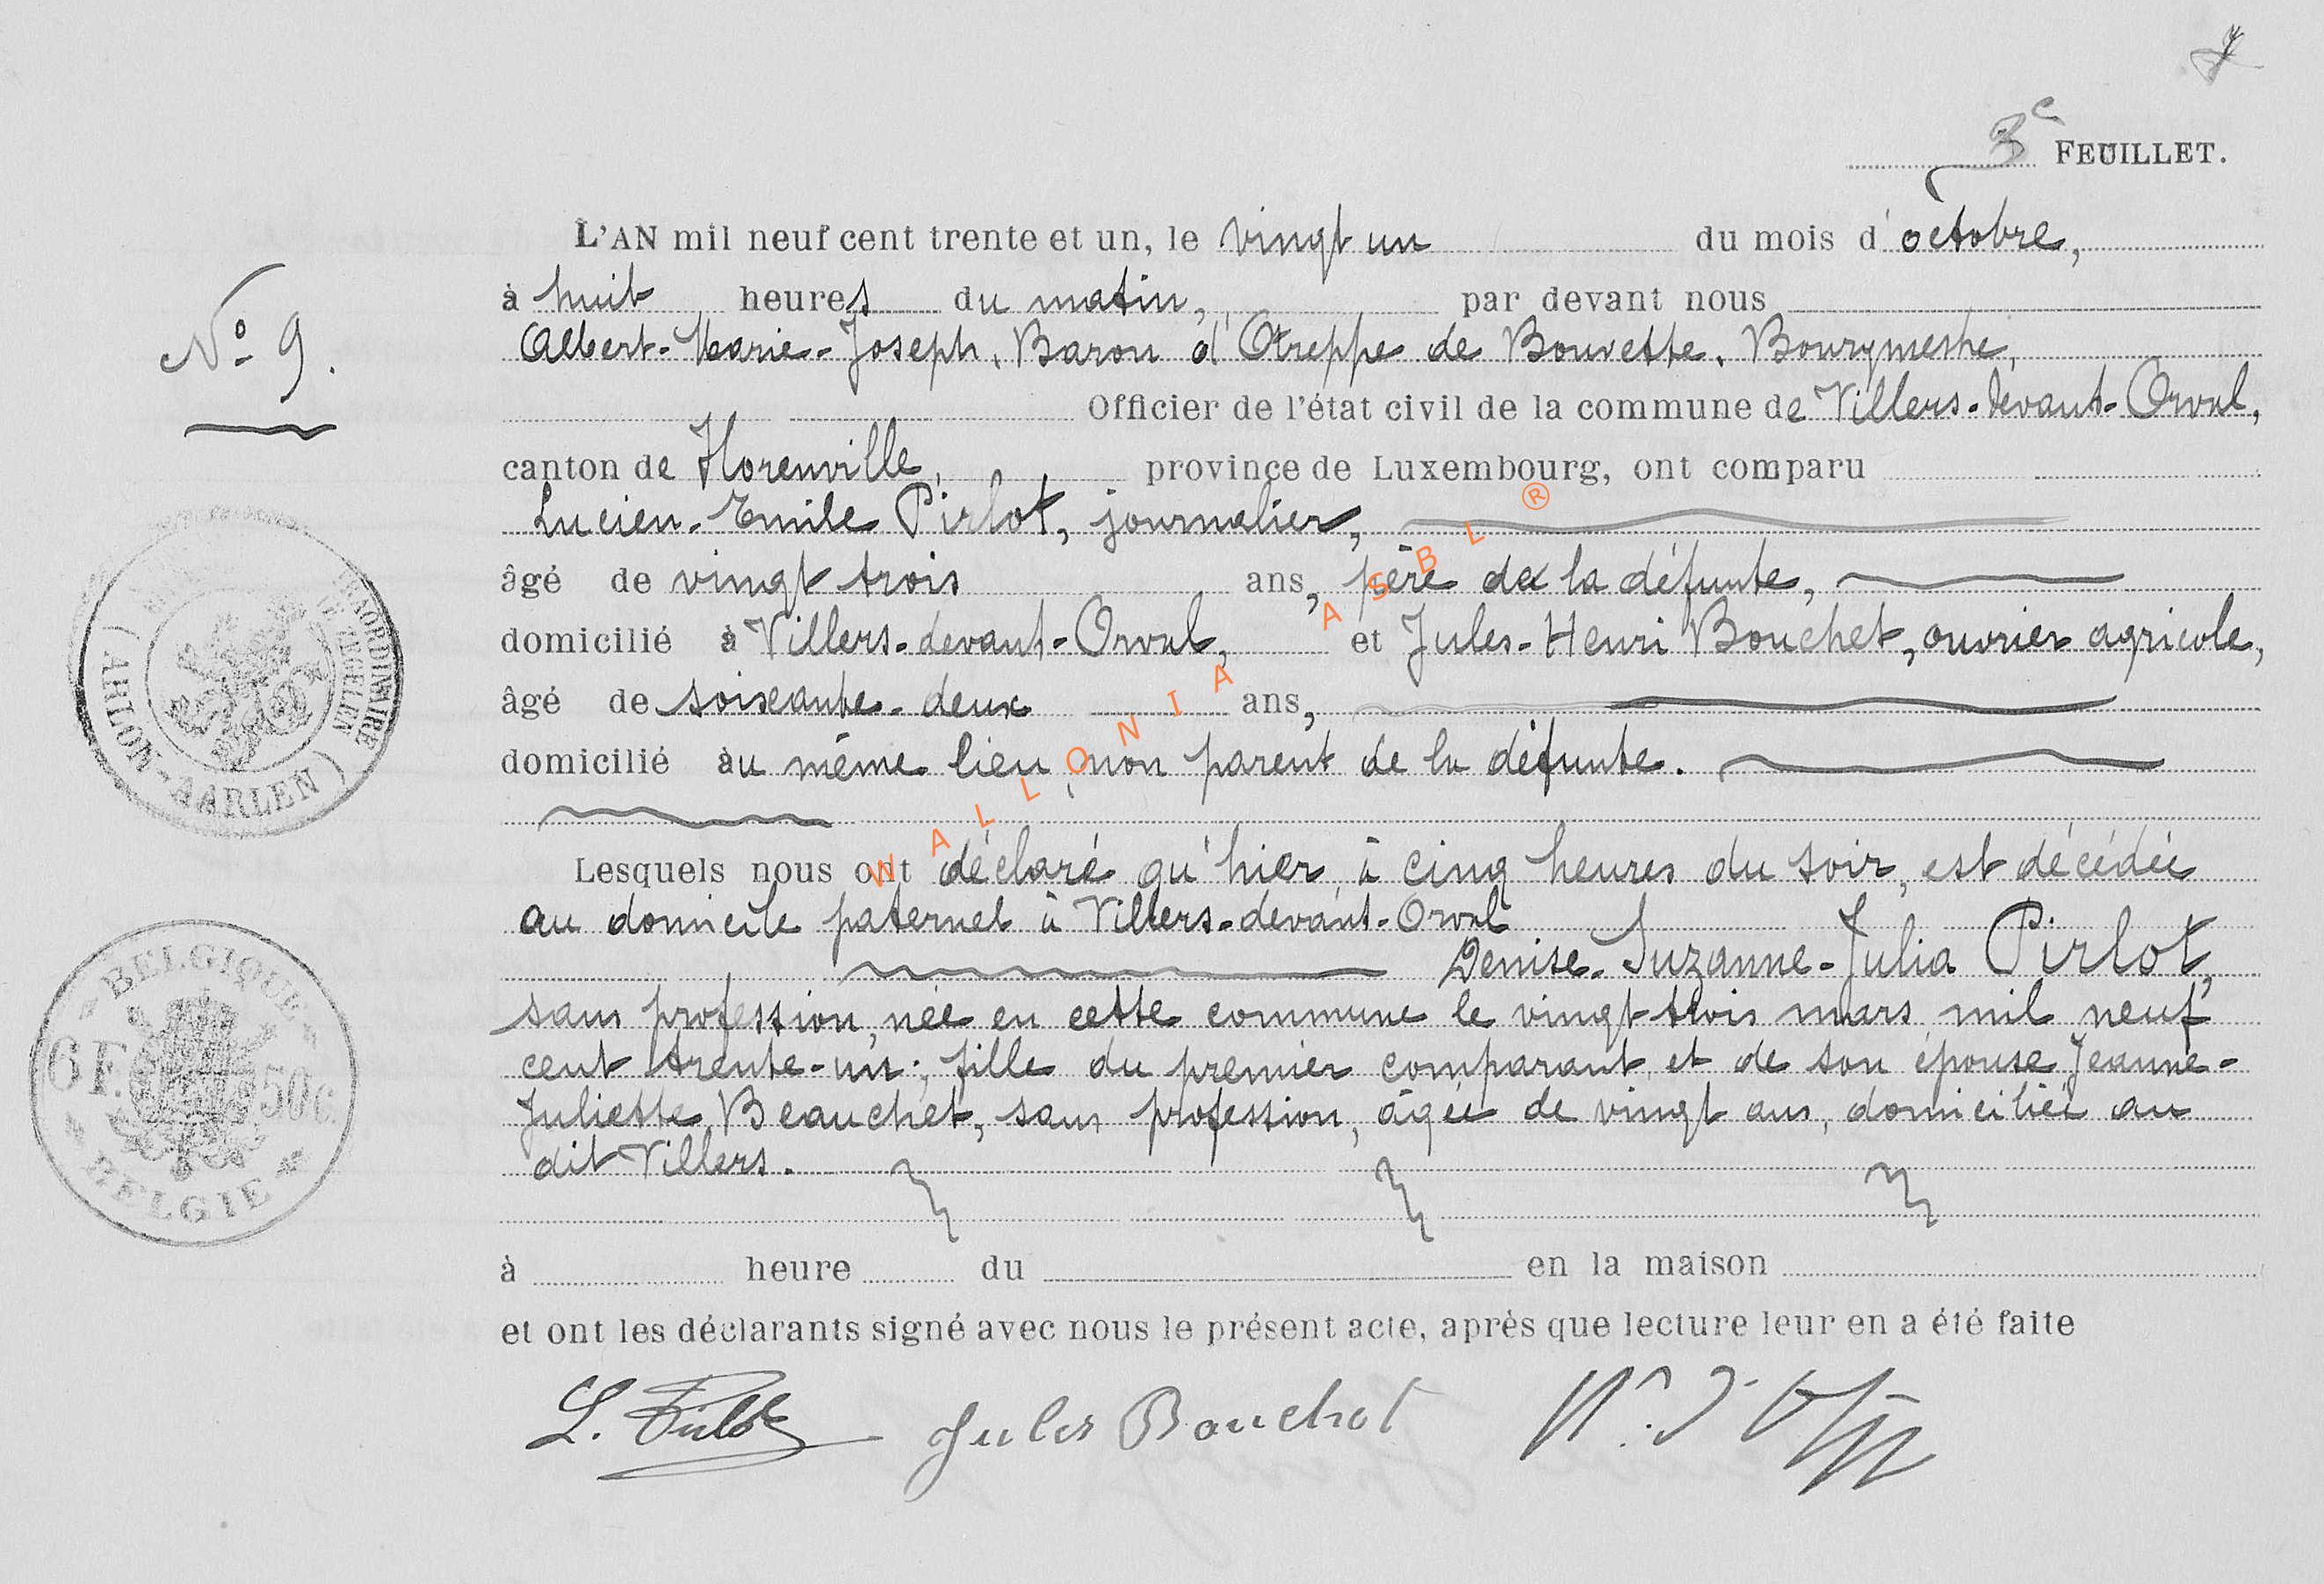 3e FEUILLET.
L'AN mil neuf cent trente et un, le vingt un du mois d'octobre,
à huit heures du matin, par devant nous
N° 9.
Albert-Marie-Joseph, Baron d'Otreppe de Bouvette, Bourgmestre,
Officier de l'état civil de la commune de Villers-devant-Orval,
canton de Florenville, province de Luxembourg, ont comparu
Lucien-Emile Pirlot, journalier,
âgé de vingt trois ans, père de la défunte,
domicilié à Villers-devant-Orval, et Jules-Henri Bouchet, ouvrier agricole,
âgé de soixante-deux ans,
domicilié au même lieu, non parent de la défunte.
Lesquels nous ont déclaré qu'hier, à cinq heures du soir, est décédée
au domicile paternel à Villers-devant-Orval
Denise-Suzanne-Julia Pirlot,
sans profession, née en cette commune le vingt-trois mars mil neuf
cent trente-un; fille du premier comparant et de son épouse Jeanne-
Juliette Beauchet, sans profession, âgée de vingt ans, domiciliée au
dit Villers.
à heure du en la maison
et ont les déclarants signé avec nous le présent acte, après que lecture leur en a été faite
L. Pirlot Jules Bouchot
(ARLON-AARLEN)
BELGIQUE
6 F. 50 C.
BELGIE
WALLONIA ASBL ®